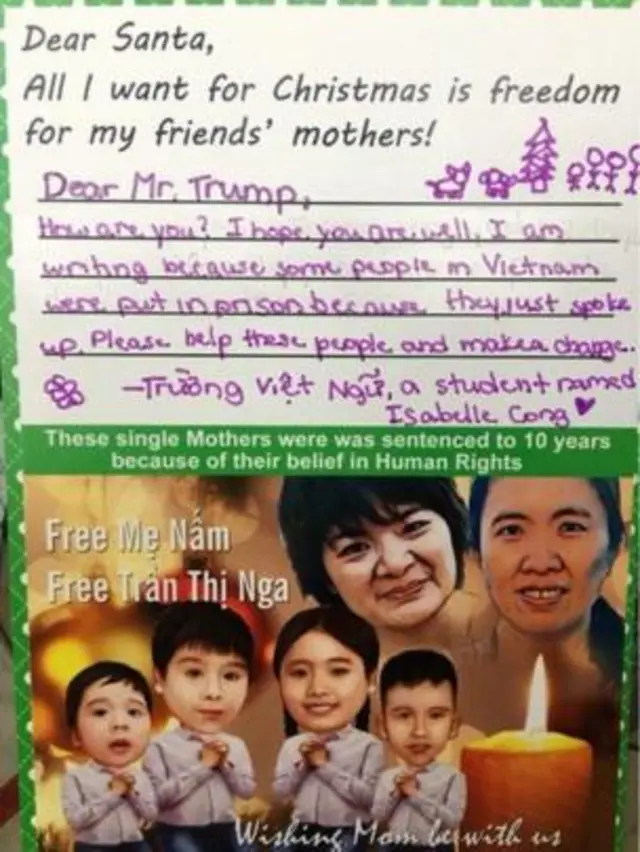 Dear Santa,
All I want for Christmas is freedom
for my friends' mothers!
Dear Mr. Trump,
How are you? I hope you are well. I am
writing because some people in Vietnam
were put in prison because they just spoke
up. Please help these people and make a change..
—Trường Việt Ngữ, a student named
Isabelle Cong
These single Mothers were was sentenced to 10 years
because of their belief in Human Rights
Free Mẹ Nấm
Free Trần Thị Nga
Wishing Mom be with us